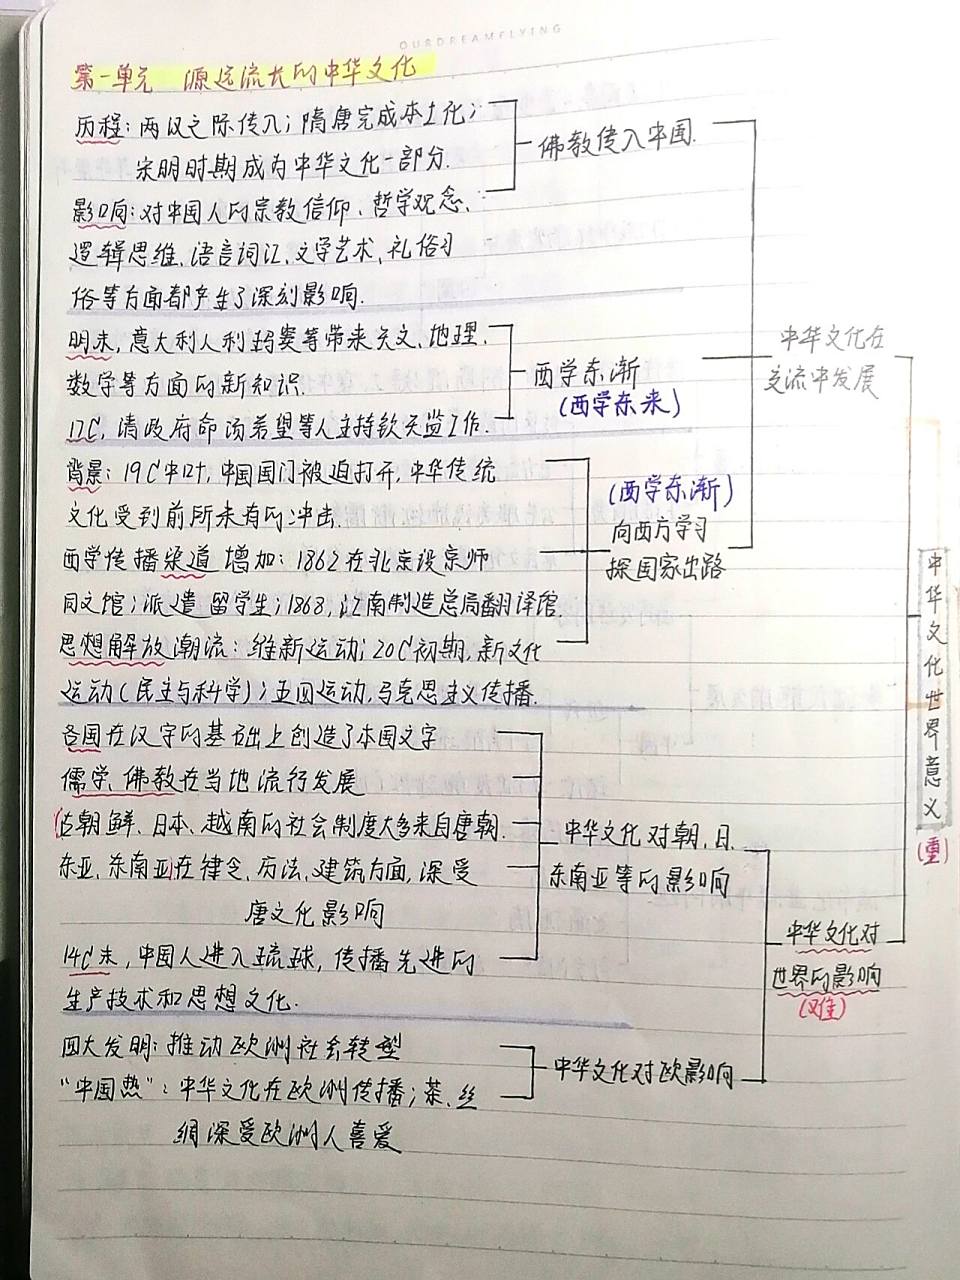 OURDREAMFLYING
第一单元 源远流长的中华文化
历程：两汉之际传入；隋唐完成本土化；
宋明时期成为中华文化一部分.
佛教传入中国.
影响：对中国人的宗教信仰、哲学观念、
逻辑思维、语言词汇、文学艺术、礼俗习
俗等方面都产生了深刻影响.
明末，意大利人利玛窦等带来天文、地理、
数学等方面的新知识.
西学东渐
(西学东来)
17C，清政府命汤若望等人主持钦天监工作.
中华文化在
交流中发展
背景：19C中叶，中国国门被迫打开，中华传统
文化受到前所未有的冲击.
西学传播渠道增加：1862在北京设京师
同文馆；派遣留学生；1868，江南制造总局翻译馆.
思想解放潮流：维新运动；20C初期，新文化
运动(民主与科学)；五四运动，马克思主义传播.
(西学东渐)
向西方学习
探国家出路
中华文化世界意义
(重)
各国在汉字的基础上创造了本国文字
儒学、佛教在当地流行发展
古朝鲜、日本、越南的社会制度大多来自唐朝.
东亚、东南亚在律令、历法、建筑方面，深受
唐文化影响
14C末，中国人进入琉球，传播先进的
生产技术和思想文化.
中华文化对朝、日、
东南亚等的影响
中华文化对
世界的影响
(难)
四大发明：推动欧洲社会转型
“中国热”：中华文化在欧洲传播；茶、丝
绸深受欧洲人喜爱
中华文化对欧影响